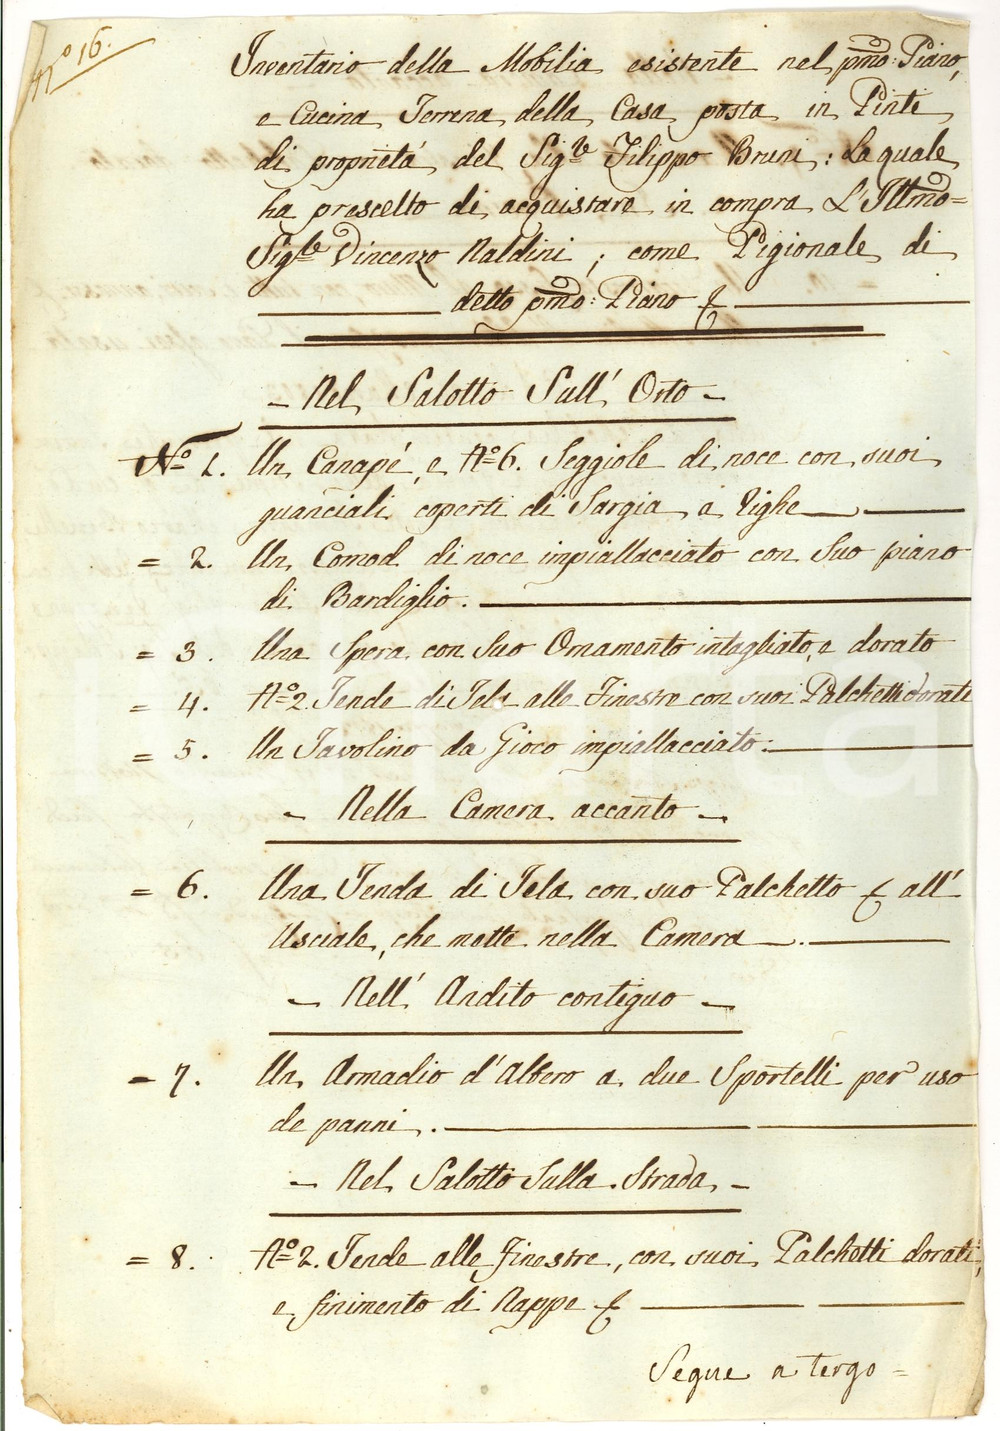 N.º 16.
Inventario della Mobilia esistente nel pmo: Piano,
e Cucina Terrena della Casa posta in Pinti
di proprietà del Sigre Filippo Bruni: La quale
ha prescelto di acquistare in compra L'Illmo=
Sigre Vincenzo Naldini; come Pigionale di
detto pmo: Piano
- Nel Salotto Sull' Orto -
Nº 1. Un Canapé, e Nº 6. Seggiole di noce con suoi
guanciali coperti di Sargia a Righe
= 2. Un Comod. di noce impiallacciato con Suo piano
di Bardiglio.
= 3. Una Spera con Suo Ornamento intagliato, e dorato
= 4. Nº 2 Tende di Tela alle Finestre con suoi Palchetti dorati
= 5. Un Tavolino da Gioco impiallacciato:
- Nella Camera accanto -
= 6. Una Tenda di Tela con suo Palchetto all'
Usciale, che mette nella Camera.
- Nell' Andito contiguo -
= 7. Un Armadio d'Albero a due Sportelli per uso
de panni.
- Nel Salotto Sulla Strada -
= 8. Nº 2. Tende alle Finestre, con suoi Palchetti dorati,
e finimento di Nappe
Segue a tergo =